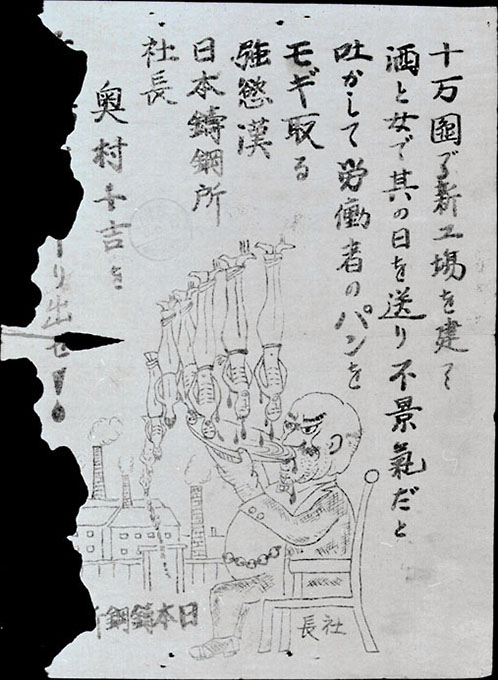 十万圓で新工場を建て
酒と女で其の日を送り不景氣だと
吐かして労働者のパンを
モギ取る
強慾漢
日本鑄鋼所
社長
奥村千吉を
り出せ!
日本鑄鋼所
社長